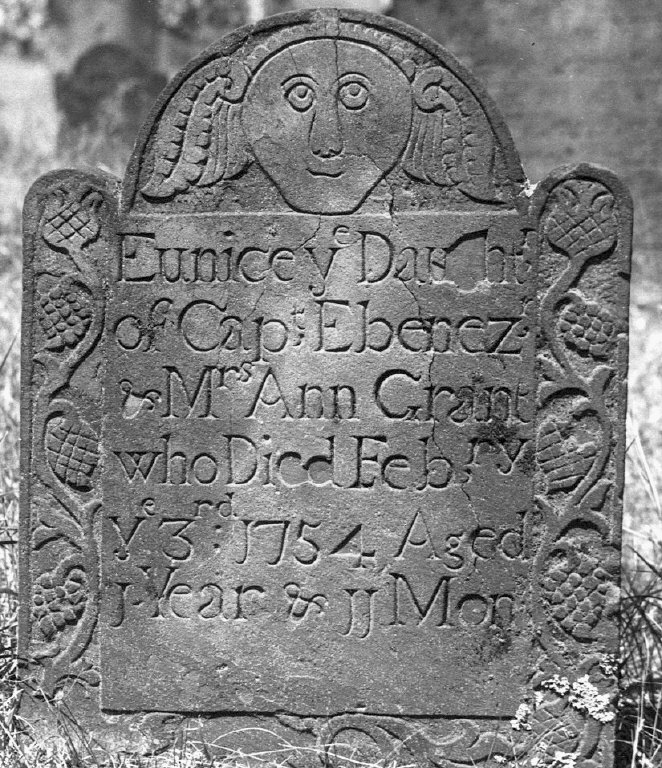 Eunice yᵉ Daughᵗ
of Capᵗ: Ebenezʳ
& Mʳˢ Ann Grant
who Died Febʳʸ
yᵉ 3ʳᵈ: 1754 Aged
1 Year & 11 Monˢ